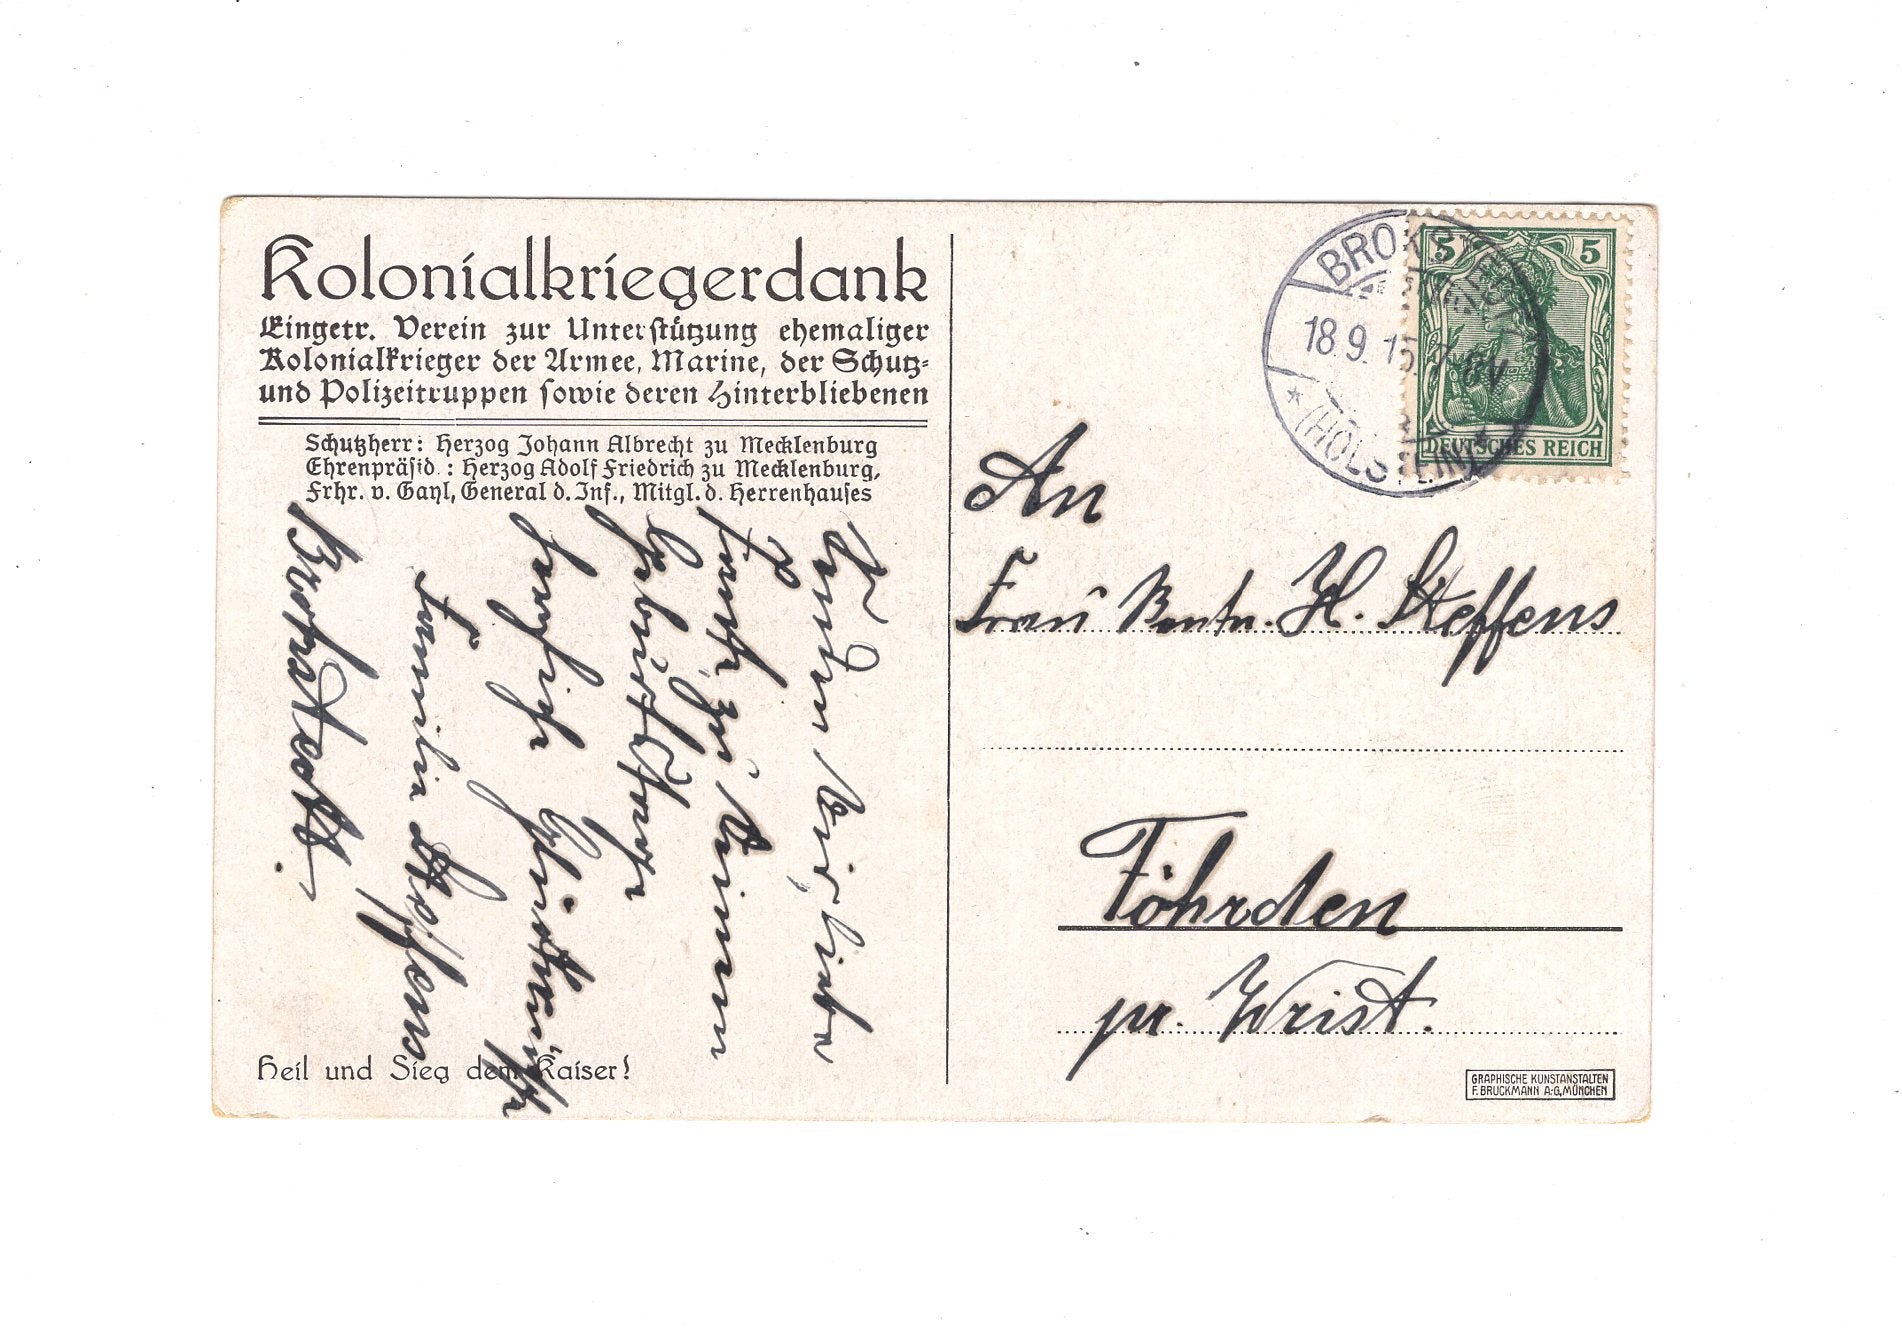 Kolonialkriegerdank
Eingetr. Verein zur Unterstützung ehemaliger
Kolonialkrieger der Armee, Marine, der Schutz=
und Polizeitruppen sowie deren Hinterbliebenen
Schutzherr: Herzog Johann Albrecht zu Mecklenburg
Ehrenpräsid.: Herzog Adolf Friedrich zu Mecklenburg,
Frhr. v. Gayl, General d. Inf., Mitgl. d. Herrenhauses
Senden wir liebe
Tante zu Deinem
Geburtstage
herzliche Glückwünsche
Familie Steffens
Brokstedt.
Heil und Sieg dem Kaiser!
BROKSTEDT
18.9.15. 7-8V
(HOLSTEIN)
5 5
DEUTSCHES REICH
An
Frau Rentn. H. Steffens
Föhrden
pr. Wrist.
GRAPHISCHE KUNSTANSTALTEN
F. BRUCKMANN A.-G., MÜNCHEN